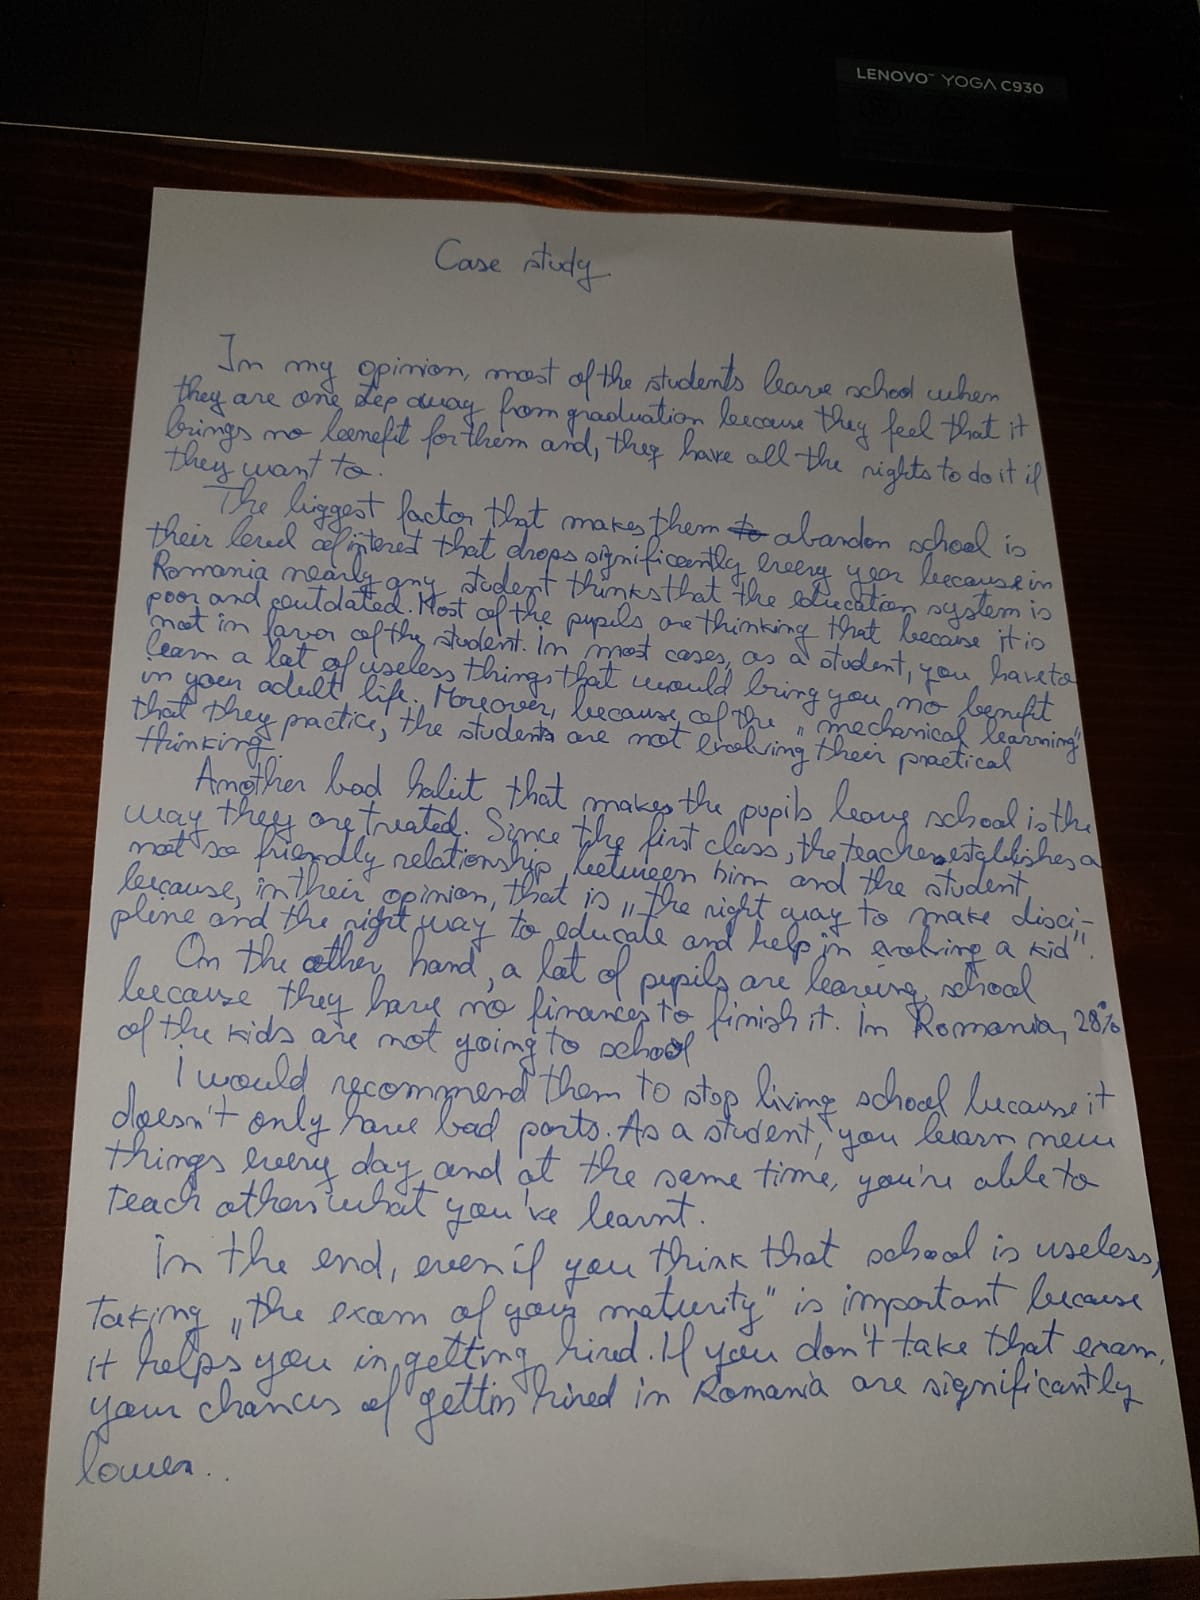 LENOVO™ YOGA C930
Case study
In my opinion, most of the students leave school when
they are one step away from graduation because they feel that it
brings no benefit for them and, they have all the rights to do it if
they want to.
The biggest factor that makes them to abandon school is
their level of interest that drops significantly every year because in
Romania nearly any student thinks that the education system is
poor and outdated. Most of the pupils are thinking that because it is
not in favor of the student. In most cases, as a student, you have to
learn a lot of useless things that would bring you no benefit
in your adult life. Moreover, because of the „mechanical learning"
that they practice, the students are not evolving their practical
thinking.
Another bad habit that makes the pupils leave school is the
way they are treated. Since the first class, the teacher establishes a
not so friendly relationship between him and the student
because, in their opinion, that is „the right way to make disci-
pline and the right way to educate and help in evolving a kid".
On the other hand, a lot of pupils are leaving school
because they have no finances to finish it. In Romania, 28%
of the kids are not going to school
I would recommend them to stop living school because it
doesn't only have bad parts. As a student, you learn new
things every day and at the same time, you're able to
teach others what you've learnt.
In the end, even if you think that school is useless,
taking „the exam of your maturity" is important because
it helps you in getting hired. If you don't take that exam,
your chances of gettin hired in Romania are significantly
lower..